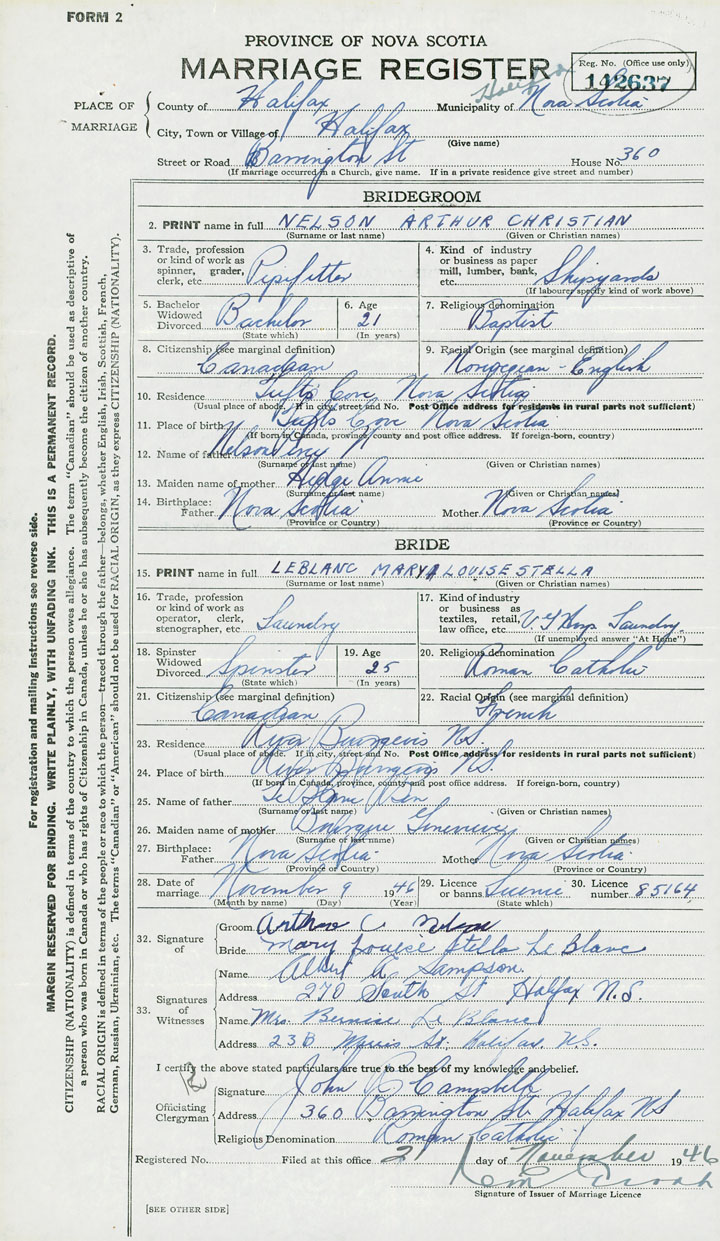 FORM 2
PROVINCE OF NOVA SCOTIA
MARRIAGE REGISTER
Reg. No. (Office use only)
142637
PLACE OF MARRIAGE
County of Halifax Municipality of Halifax Nova Scotia
City, Town or Village of Halifax
(Give name)
Street or Road Barrington St House No. 360
(If marriage occurred in a Church, give name. If in a private residence give street and number)
BRIDEGROOM
2. PRINT name in full NELSON ARTHUR CHRISTIAN
(Surname or last name) (Given or Christian names)
3. Trade, profession or kind of work as spinner, grader, clerk, etc. Pipefitter
4. Kind of industry or business as paper mill, lumber, bank, etc. Shipyards
(If labourer specify kind of work above)
5. Bachelor Widowed Divorced Bachelor
(State which)
6. Age 21
(In years)
7. Religious denomination Baptist
8. Citizenship (see marginal definition) Canadian
9. Racial Origin (see marginal definition) Norwegian - English
10. Residence Tufts Cove Nova Scotia
(Usual place of abode. If in city, street and No. Post Office address for residents in rural parts not sufficient)
11. Place of birth Tufts Cove Nova Scotia
(If born in Canada, province, county and post office address. If foreign-born, country)
12. Name of father Nelson
(Surname or last name) (Given or Christian names)
13. Maiden name of mother Annie
(Surname or last name) (Given or Christian names)
14. Birthplace: Father Nova Scotia Mother Nova Scotia
(Province or Country) (Province or Country)
BRIDE
15. PRINT name in full LEBLANC MARY LOUISE STELLA
(Surname or last name) (Given or Christian names)
16. Trade, profession or kind of work as operator, clerk, stenographer, etc. Laundry
17. Kind of industry or business as textiles, retail, law office, etc. Laundry
(If unemployed answer "At Home")
18. Spinster Widowed Divorced Spinster
(State which)
19. Age 25
(In years)
20. Religious denomination Roman Catholic
21. Citizenship (see marginal definition) Canadian
22. Racial Origin (see marginal definition) French
23. Residence River Bourgeois N.S.
(Usual place of abode. If in city, street and No. Post Office address for residents in rural parts not sufficient)
24. Place of birth River Bourgeois N.S.
(If born in Canada, province, county and post office address. If foreign-born, country)
25. Name of father
(Surname or last name) (Given or Christian names)
26. Maiden name of mother Bourque Genevieve
(Surname or last name) (Given or Christian names)
27. Birthplace: Father Nova Scotia Mother Nova Scotia
(Province or Country) (Province or Country)
28. Date of marriage November 9 1946
(Month by name) (Day) (Year)
29. Licence or banns Licence
(State which)
30. Licence number 85164
32. Signature of
Groom Arthur C. Nelson
Bride Mary Louise Stella Le Blanc
33. Signatures of Witnesses
Name Albert A. Sampson
Address 270 South St Halifax N.S.
Name Mrs. Bernice Le Blanc
Address 23B Morris St. Halifax N.S.
I certify the above stated particulars are true to the best of my knowledge and belief.
Officiating Clergyman
Signature John Campbell
Address 360 Barrington St. Halifax NS
Religious Denomination Roman Catholic
Registered No. Filed at this office 21 day of November 1946
Signature of Issuer of Marriage Licence
[SEE OTHER SIDE]
For registration and mailing instructions see reverse side.
MARGIN RESERVED FOR BINDING. WRITE PLAINLY, WITH UNFADING INK. THIS IS A PERMANENT RECORD.
CITIZENSHIP (NATIONALITY) is defined in terms of the country to which the person owes allegiance. The term "Canadian" should be used as descriptive of
a person who was born in Canada or who has rights of Citizenship in Canada, unless he or she has subsequently become the citizen of another country.
RACIAL ORIGIN is defined in terms of the people or race to which the person—traced through the father—belongs, whether English, Irish, Scottish, French,
German, Russian, Ukrainian, etc. The terms "Canadian" or "American" should not be used for RACIAL ORIGIN, as they express CITIZENSHIP (NATIONALITY).